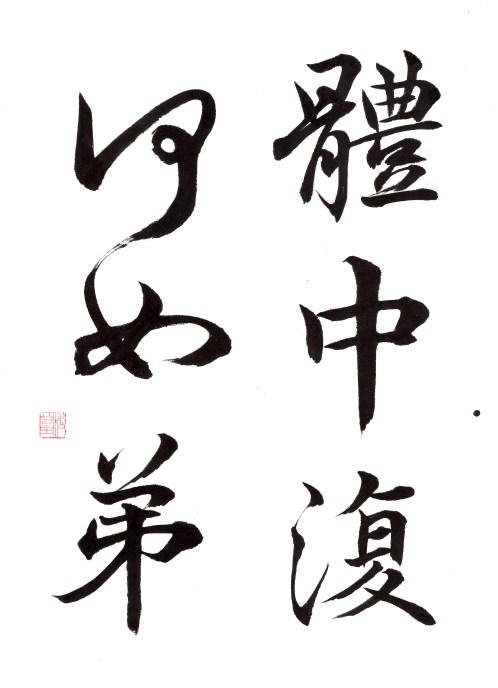 體中復
何如弟